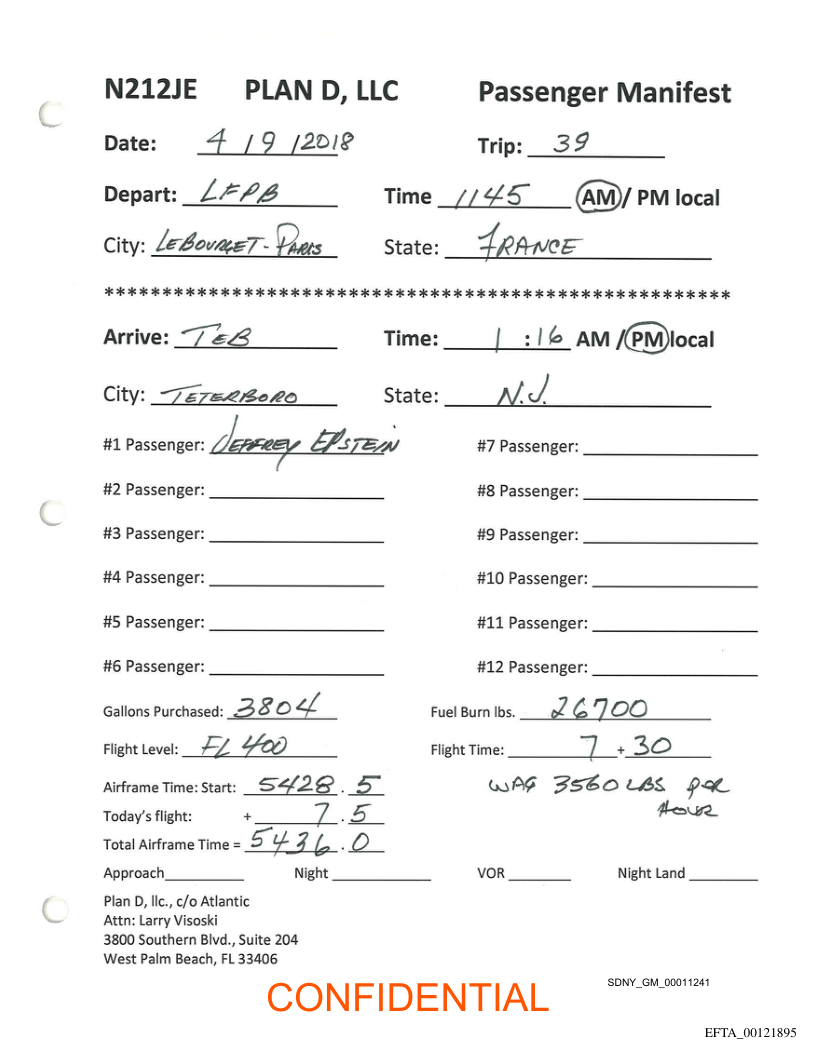 N212JE PLAN D, LLC Passenger Manifest
Date: 4 / 9 / 2018 Trip: 39
Depart: LFPB Time 1145 AM / PM local
City: LEBOURGET - PARIS State: FRANCE
******************************************************
Arrive: TEB Time: 1 : 16 AM / PM local
City: TETERBORO State: N.J.
#1 Passenger: JEFFREY EPSTEIN #7 Passenger:
#2 Passenger: #8 Passenger:
#3 Passenger: #9 Passenger:
#4 Passenger: #10 Passenger:
#5 Passenger: #11 Passenger:
#6 Passenger: #12 Passenger:
Gallons Purchased: 3804 Fuel Burn lbs. 26700
Flight Level: FL 400 Flight Time: 7 + 30
Airframe Time: Start: 5428 . 5 WAG 3560 LBS PER
Today's flight: + 7 . 5 HOUR
Total Airframe Time = 5436 . 0
Approach Night VOR Night Land
Plan D, llc., c/o Atlantic
Attn: Larry Visoski
3800 Southern Blvd., Suite 204
West Palm Beach, FL 33406
SDNY_GM_00011241
CONFIDENTIAL
EFTA_00121895